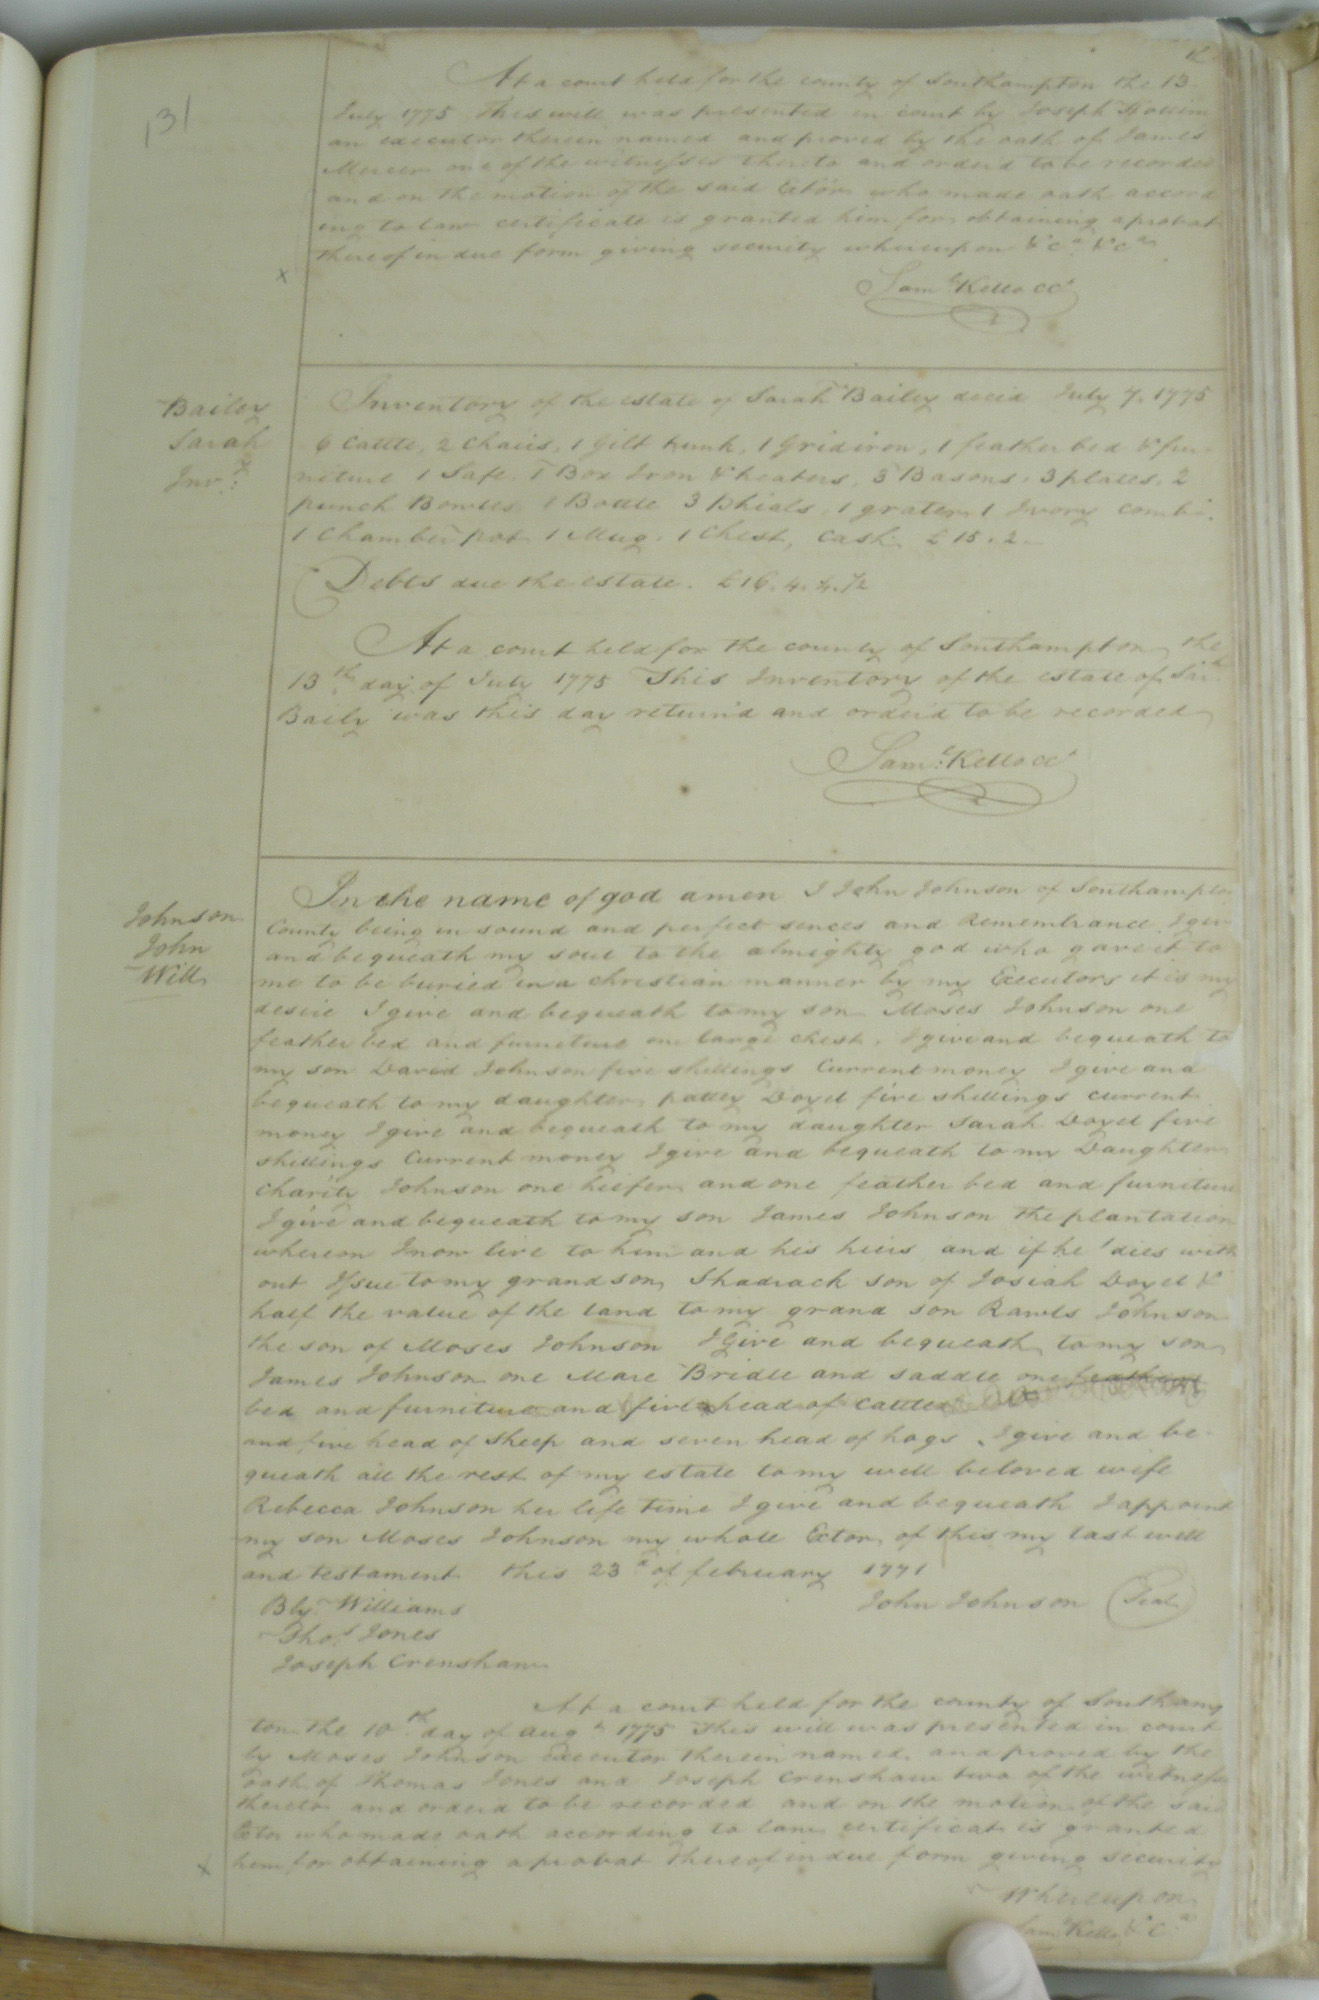 131
At a court held for the county of Southampton the 13
July 1775 This will was presented in court by Joseph
an executor therein named and proved by the oath of James
Mercer one of the witnesses thereto and orderd to be recorded
and on the motion of the said Extor who made oath accord
ing to law certificate is granted him for obtaining a probat
thereof in due form giving security whereupon &ca &ca
x
Saml Kello CC
Bailey
Sarah
Invy
Inventory of the estate of Sarah Bailey decd July 7. 1775
6 Cattle, 2 Chairs, 1 Gilt trunk, 1 Gridiron, 1 feather bed & fur
niture 1 Safe, 1 Box Iron & heaters, 3 Basons, 3 plates, 2
punch Bowles, 1 Bottle 3 Phials, 1 grater, 1 Ivory comb
1 Chamber pot 1 Mug, 1 Chest, Cash £15.2
Debts due the estate. £16.4.4.½
At a court held for the county of Southampton the
13th day of July 1775 This Inventory of the estate of Sarh
Baily was this day returnd and orderd to be recorded
Saml Kello CC
Johnson
John
Will
In the name of god amen I John Johnson of Southampton
County being in sound and perfect sences and Remembrance I give
and bequeath my soul to the almighty god who gave it to
me to be buried in a christian manner by my Executors it is my
desire I give and bequeath to my son Moses Johnson one
feather bed and furneture one large chest, I give and bequeath to
my son David Johnson five shillings Current money I give and
bequeath to my daughter patty Doyel five shillings current
money I give and bequeath to my daughter Sarah Doyel five
shillings Current money I give and bequeath to my Daughter
Charity Johnson one heifer and one feather bed and furniture
I give and bequeath to my son James Johnson the plantation
whereon I now live to him and his heirs and if he dies with
out Issue to my grandson Shadrach son of Josiah Doyel &
half the value of the land to my grand son Rawls Johnson
the son of Moses Johnson I Give and bequeath to my son
James Johnson one Mare Bridle and saddle one feather
bed and furniture and five head of Cattle
and five head of Sheep and seven head of hogs I give and be
queath all the rest of my estate to my well beloved wife
Rebecca Johnson her life time I give and bequeath I appoint
my son Moses Johnson my whole Extor of this my last will
and testament this 23d of february 1771
Bly Williams
John Johnson (Seal)
Thos Jones
Joseph Crenshaw
At a court held for the county of Southamp
ton the 10th day of Augt 1775 This will was presented in court
by Moses Johnson Executor therein named and proved by the
oath of Thomas Jones and Joseph Crenshaw two of the witnesses
thereto and orderd to be recorded and on the motion of the said
Extor who made oath according to law certificate is granted
x
him for obtaining a probat thereof in due form giving security
Whereupon
Saml Kello &Ca